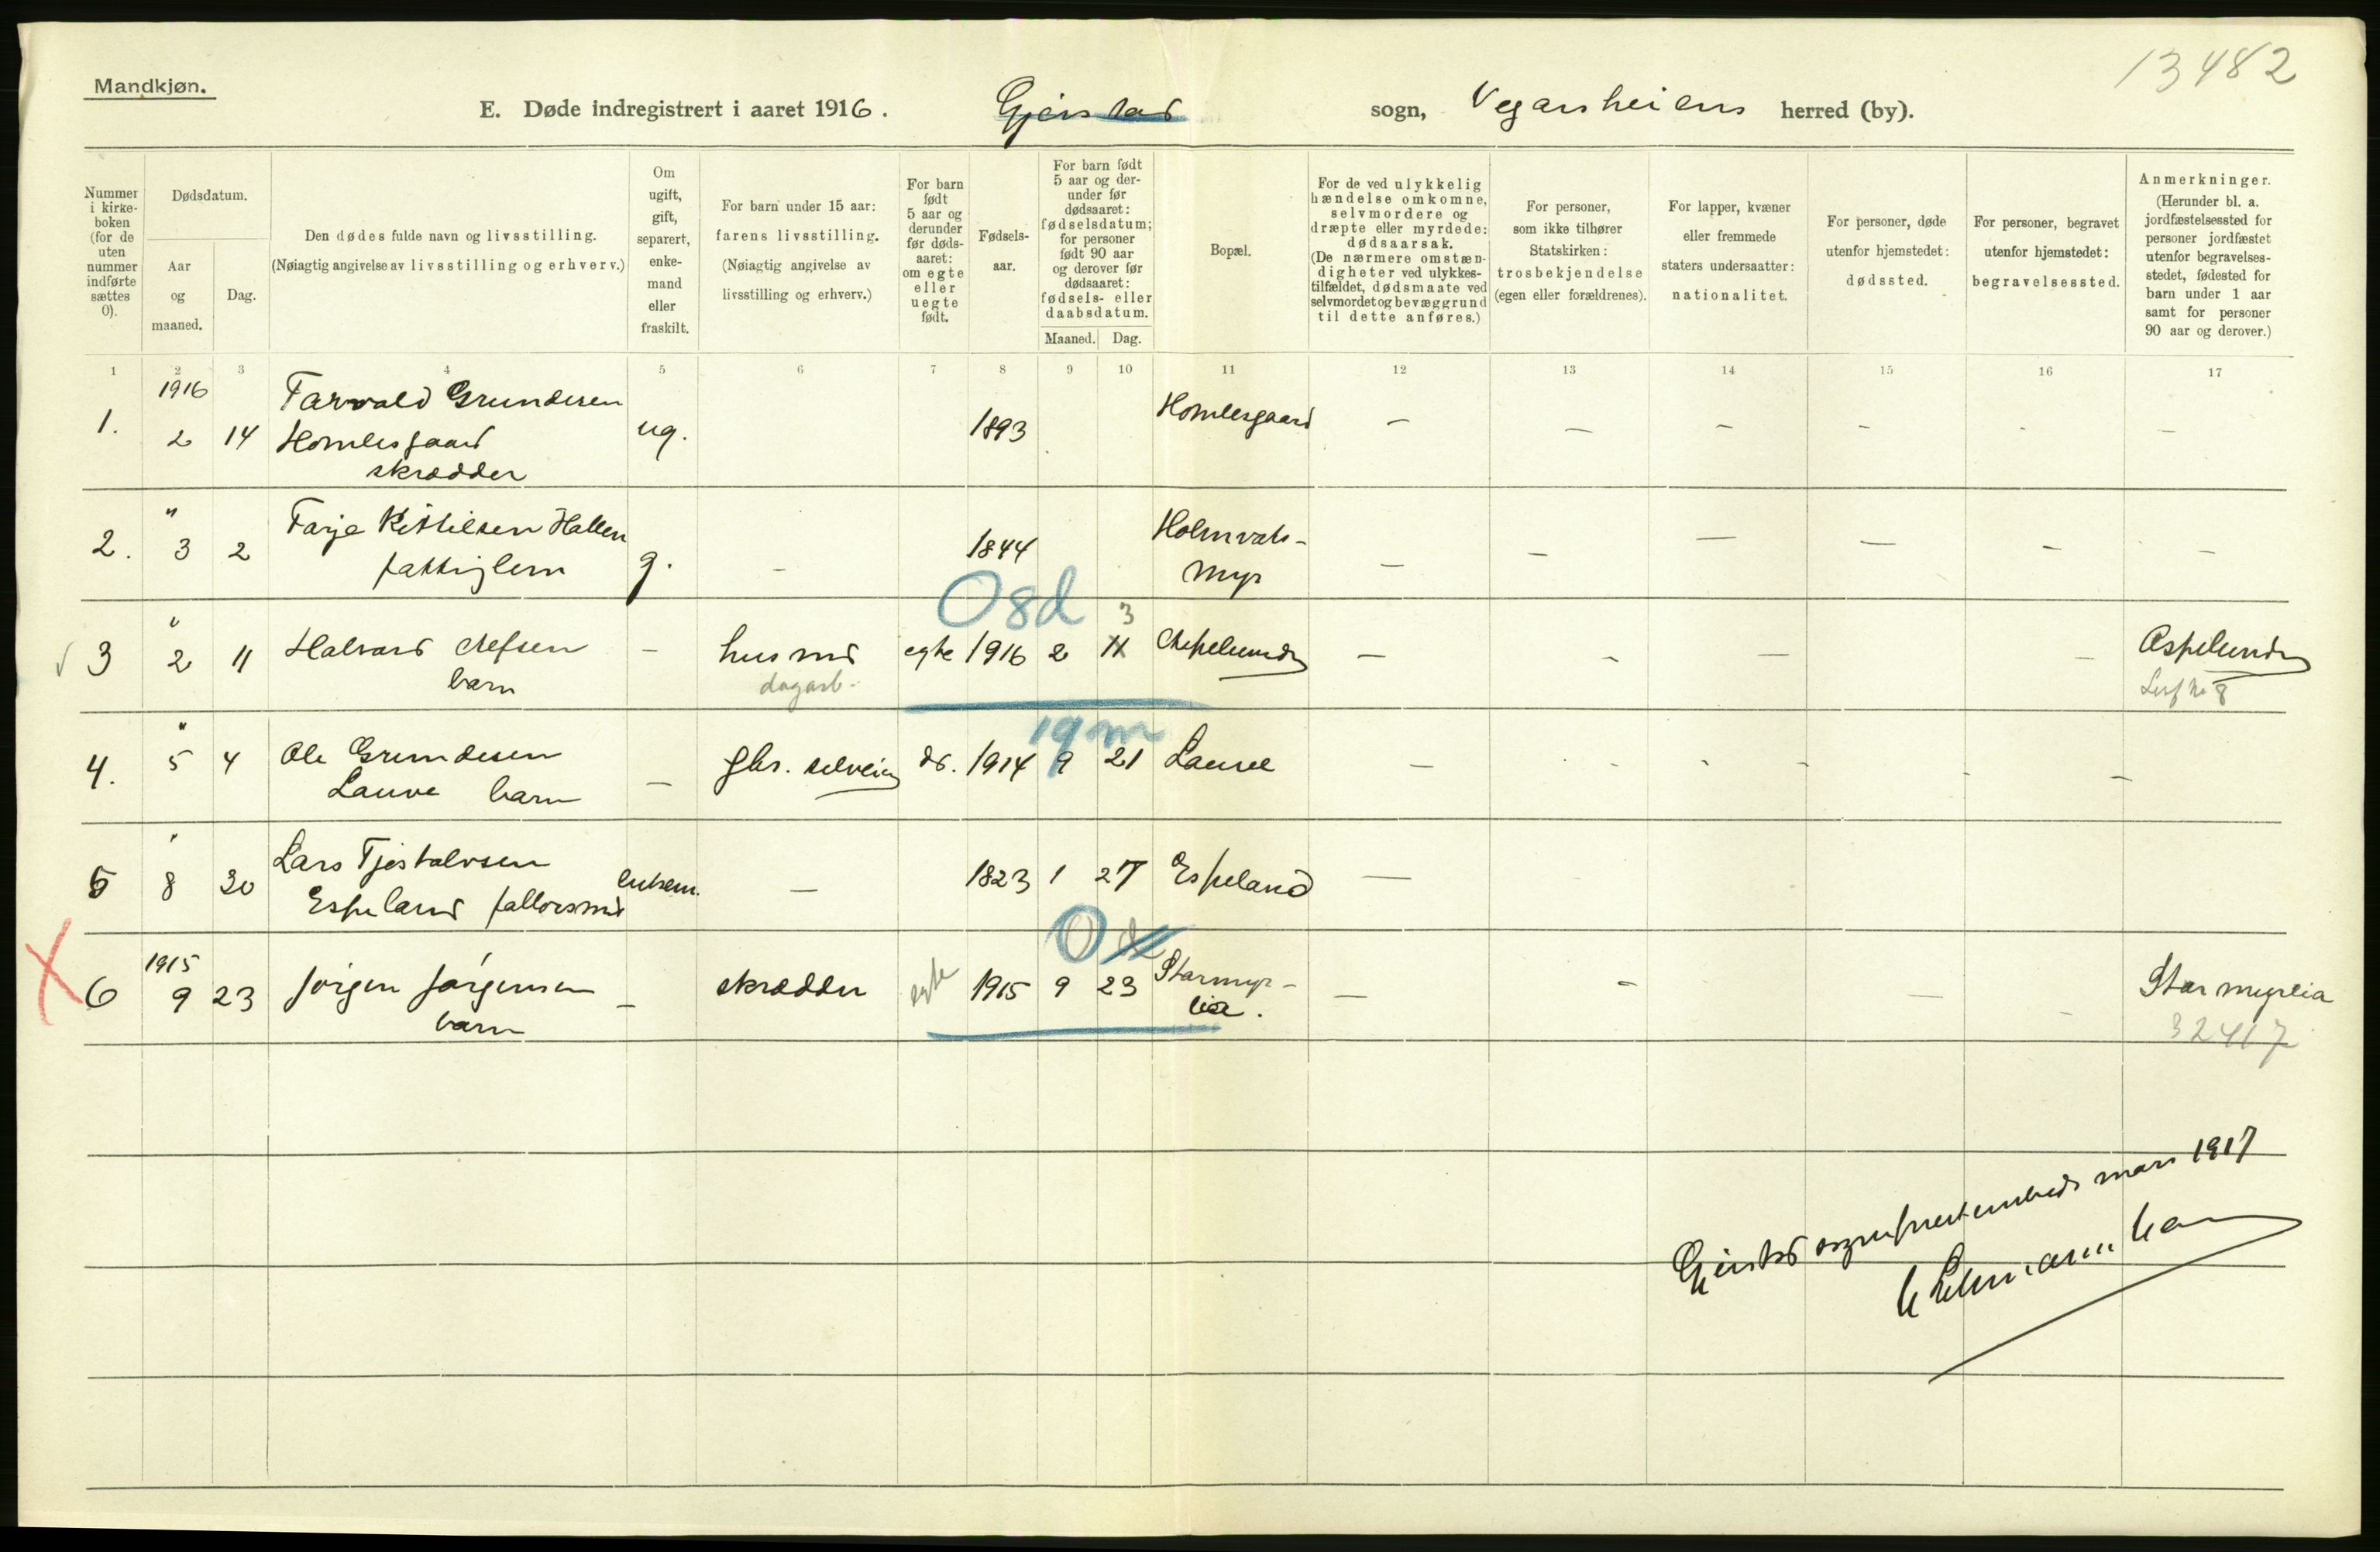 13482
Mandkjøn.
E. Døde indregistrert i aaret 1916. Gjerstad sogn, Vegarsheiens herred (by).
Nummer i kirkeboken (for de uten nummer indførte sættes 0).
Dødsdatum.
Aar og maaned.
Dag.
Den dødes fulde navn og livsstilling.
(Nøiagtig angivelse av livsstilling og erhverv.)
Om ugift, gift, separert, enkemand eller fraskilt.
For barn under 15 aar: farens livsstilling.
(Nøiagtig angivelse av livsstilling og erhverv.)
For barn født 5 aar og derunder før dødsaaret: om egte eller uegte født.
Fødselsaar.
For barn født 5 aar og derunder før dødsaaret: fødselsdatum; for personer født 90 aar og derover før dødsaaret: fødsels- eller daabsdatum.
Maaned. Dag.
Bopæl.
For de ved ulykkelig hændelse omkomne, selvmordere og dræpte eller myrdede: dødsaarsak.
(De nærmere omstændigheter ved ulykkestilfældet, dødsmaate ved selvmordet og bevæggrund til dette anføres.)
For personer, som ikke tilhører Statskirken: trosbekjendelse (egen eller forældrenes).
For lapper, kvæner eller fremmede staters undersaatter: nationalitet.
For personer, døde utenfor hjemstedet: dødssted.
For personer, begravet utenfor hjemstedet: begravelsessted.
Anmerkninger.
(Herunder bl. a. jordfæstelsessted for personer jordfæstet utenfor begravelsesstedet, fødested for barn under 1 aar samt for personer 90 aar og derover.)
1 2 3 4 5 6 7 8 9 10 11 12 13 14 15 16 17
1916
1. 2 14 Tarvald Grundesen ug. 1893 Homlesgaard – – – – - –
Homlesgaard
skrædder
"
2. 3 2 Tarje Kittilsen Hallen g. – 1844 Holmvats-
fattiglem myr – – – – – –
08d
3
"
3 2 11 Halvard – husmd egte 1916 2 11 – – – – Aspelund
barn dagarb.
8
19m
"
4. 5 4 Ole Grundesen – gbr. selveier do. 1914 9 21 Lauve – - - - - –
Lauve barn
"
5 8 30 Lars Tjøstolvsen enkem. – 1823 1 27 Espeland –
Espeland
0d
1915
6 9 23 Jørgen Jørgensen – skrædder egte 1915 9 23 Starmyr- – - – - Starmyrlia
barn lia.
32417
Gjerstad sogneprestembede mars 1917